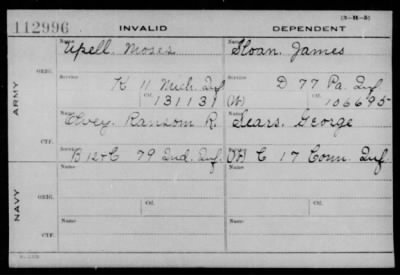 [3-H-5]
112996 INVALID DEPENDENT
Name Name
Upell. Moses Sloan. James
ARMY
ORIG.
Service Service
K 11 Mich Inf D 77 Pa. Inf.
Ctf. Ctf.
131131 (W) 106695
Name Name
Elvey. Ransom R. Sears. George
CTF.
Service Service
B 12 & C 79 Ind. Inf. (W) C 17 Conn. Inf
NAVY
Name Name
ORIG.
Ctf. Ctf.
Name Name
CTF.